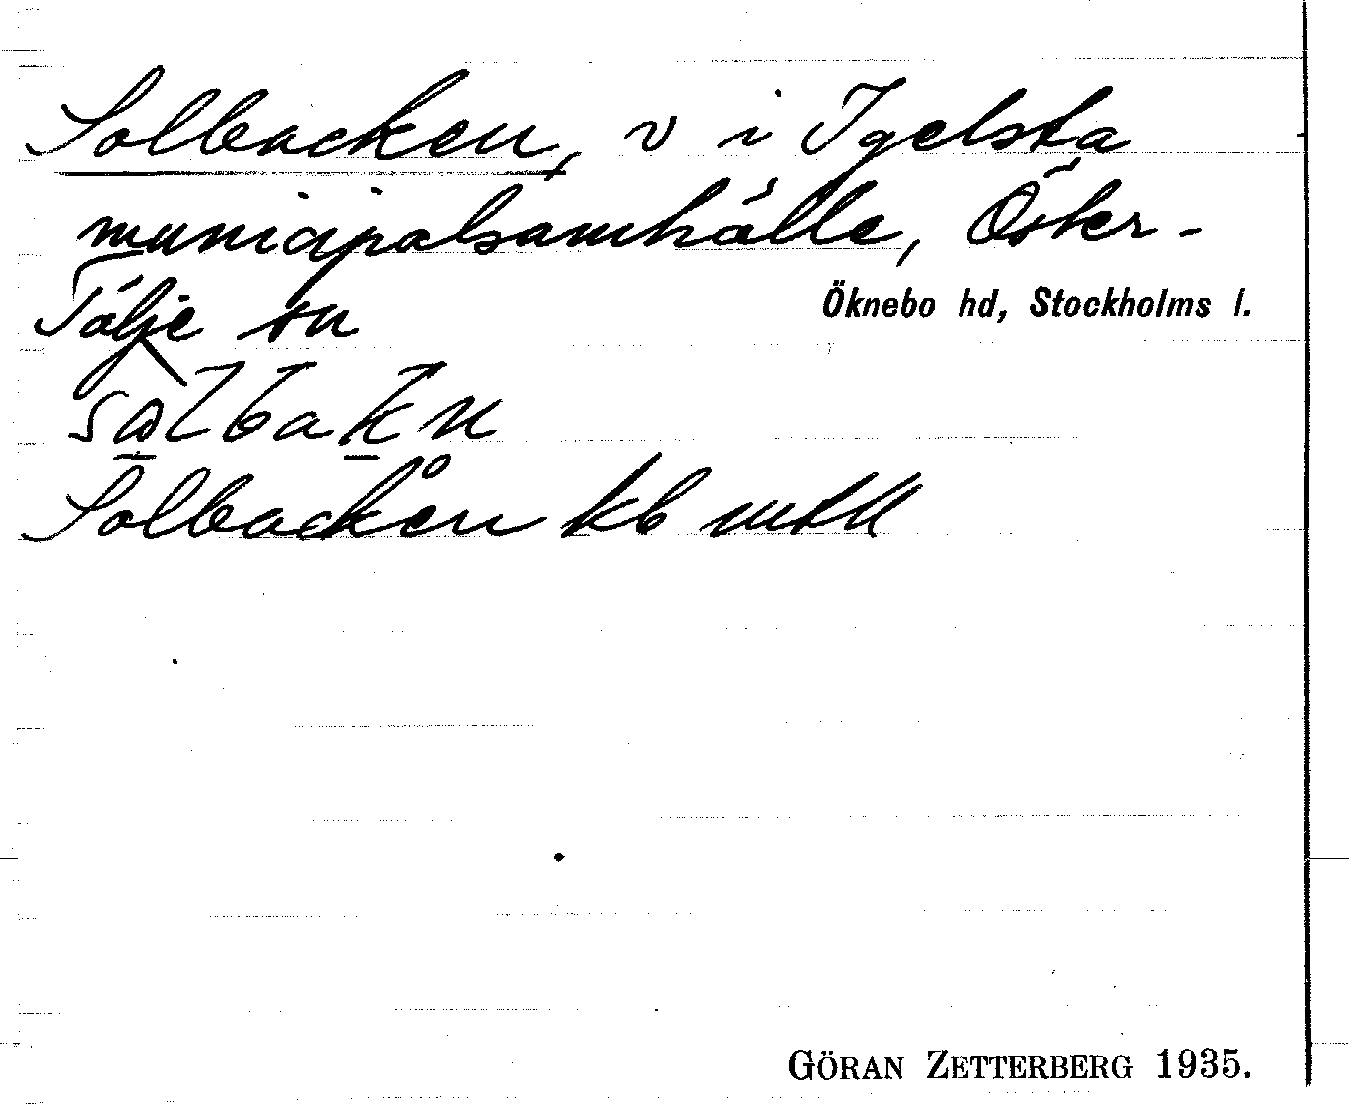 Solbacken, v i Igelsta
municipalsamhälle, Öster-
Tälje sn
Öknebo hd, Stockholms l.
Solbacken kb
GÖRAN ZETTERBERG 1935.